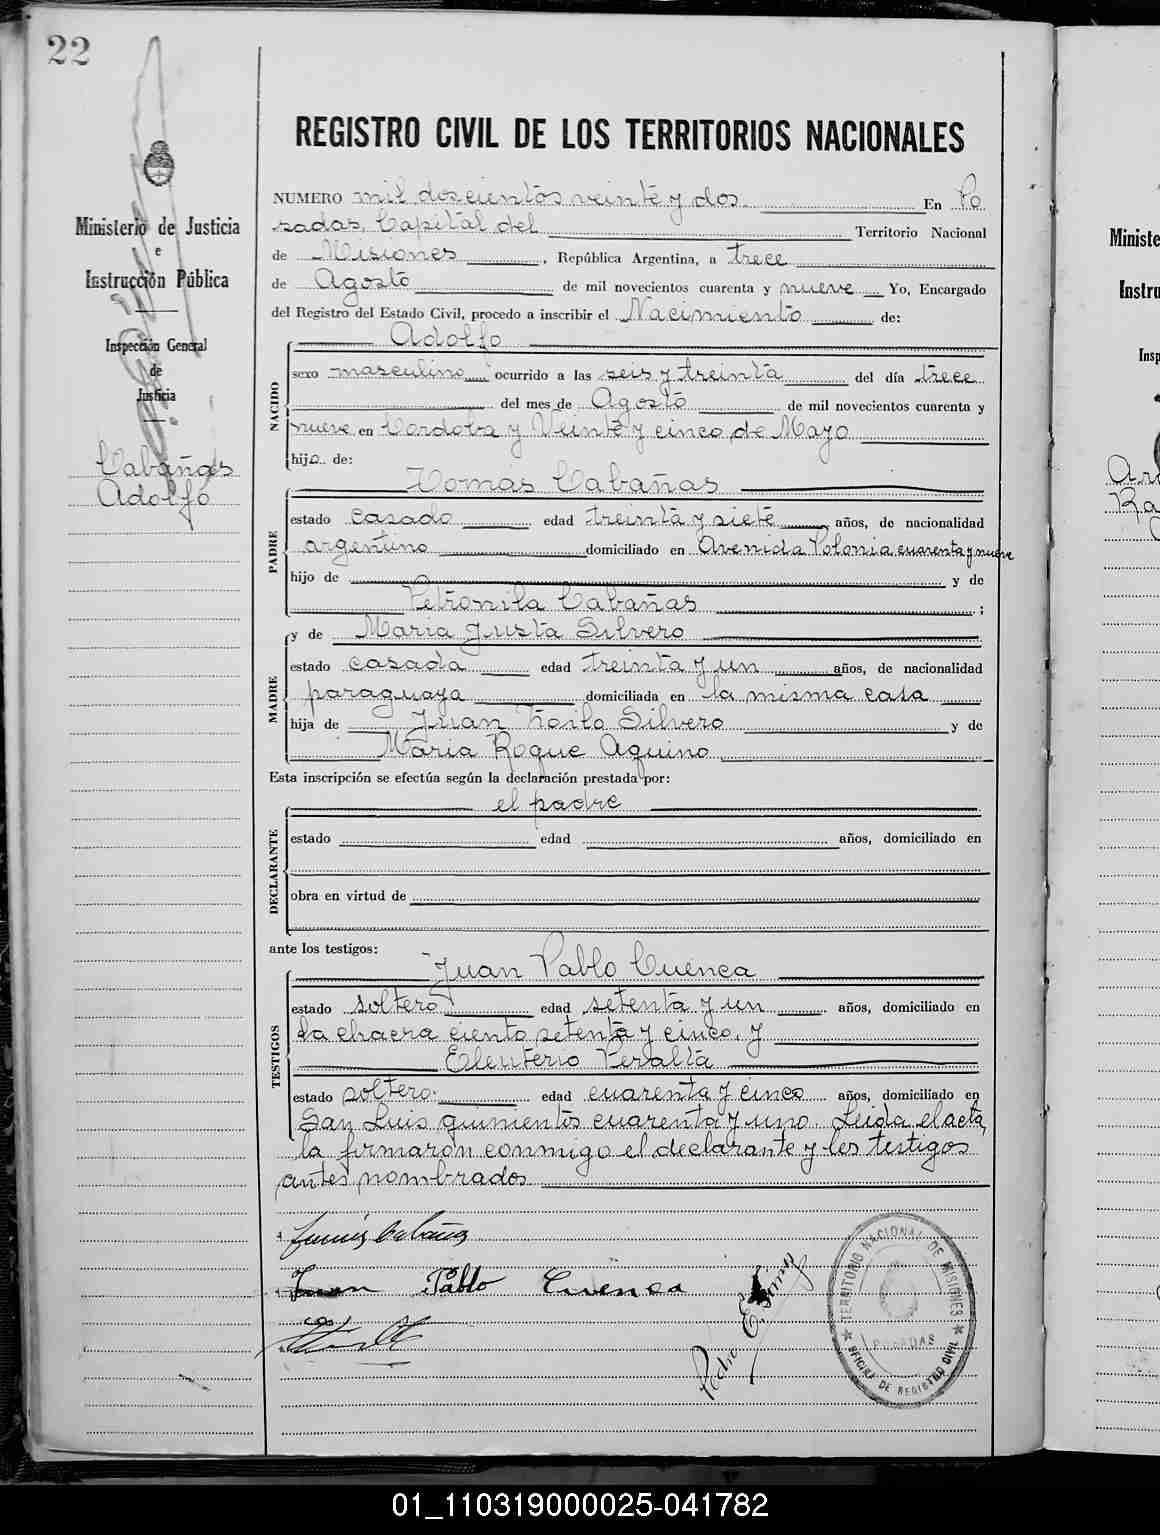 22
REGISTRO CIVIL DE LOS TERRITORIOS NACIONALES
Ministerio de Justicia
e
Instrucción Pública
Inspección General
de
Justicia
Cabañas
Adolfo
NUMERO mil doscientos veinte y dos En Po
sadas, Capital del Territorio Nacional
de Misiones, República Argentina, a trece
de Agosto de mil novecientos cuarenta y nueve Yo, Encargado
del Registro del Estado Civil, procedo a inscribir el Nacimiento de:
NACIDO
Adolfo
sexo masculino ocurrido a las seis y treinta del día trece
del mes de Agosto de mil novecientos cuarenta y
nueve en Cordoba y Veinte y cinco de Mayo
hijo de:
PADRE
Tomás Cabañas
estado casado edad treinta y siete años, de nacionalidad
argentino domiciliado en Avenida Polonia cuarenta y nueve
hijo de y de
Petronila Cabañas ;
MADRE
y de Maria Justa Silvero
estado casada edad treinta y un años, de nacionalidad
paraguaya domiciliada en la misma casa
hija de Juan Silvero y de
Maria Roque Aquino
Esta inscripción se efectúa según la declaración prestada por:
DECLARANTE
el padre
estado edad años, domiciliado en
obra en virtud de
ante los testigos:
TESTIGOS
Juan Pablo Cuenca
estado soltero edad setenta y un años, domiciliado en
la chacra ciento setenta y cinco, y
Eleuterio Peralta
estado soltero edad cuarenta y cinco años, domiciliado en
San Luis quinientos cuarenta y uno. Leida el acta,
la firmaron conmigo el declarante y los testigos
antes nombrados.
Cabañas
Juan Pablo Cuenca
Pedro E.
TERRITORIO NACIONAL DE MISIONES
POSADAS
OFICINA DE REGISTRO CIVIL
Ministe
Instru
Insp
01_110319000025-041782